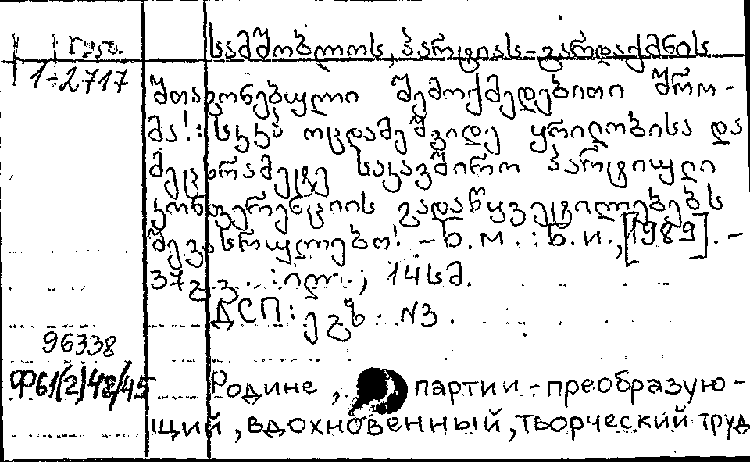 სამშობლოს, პარტიას - გარდაქმნის
1-2717
შთაგონებული შემოქმედებითი შრო-
მა! : სკკპ ოცდამეშვიდე ყრილობისა და
მეცხრამეტე საკავშირო პარტიული
კონფერენციის გადაწყვეტილებებს
შევასრულებთ! - ნ. მ. : ნ. ი., [1989]. -
37 გვ. : ილ. ; 14 სმ.
ДСП : ეგზ. N3.
96338
Ф61(2)48/45
Родине, партии - преобразую-
щий, вдохновенный, творческий труд